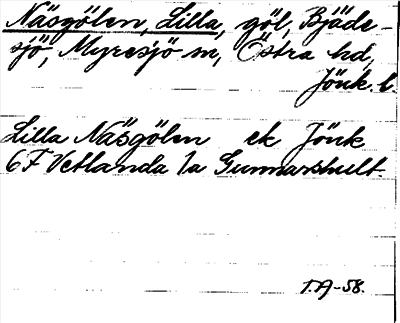 Näsgölen, Lilla, göl, Bjäde-
sjö, Myresjö sn, Östra hd,
Jönk. l.
Lilla Näsgölen ek Jönk
6F Vetlanda 1a Gunnarshult.
T.A-58.